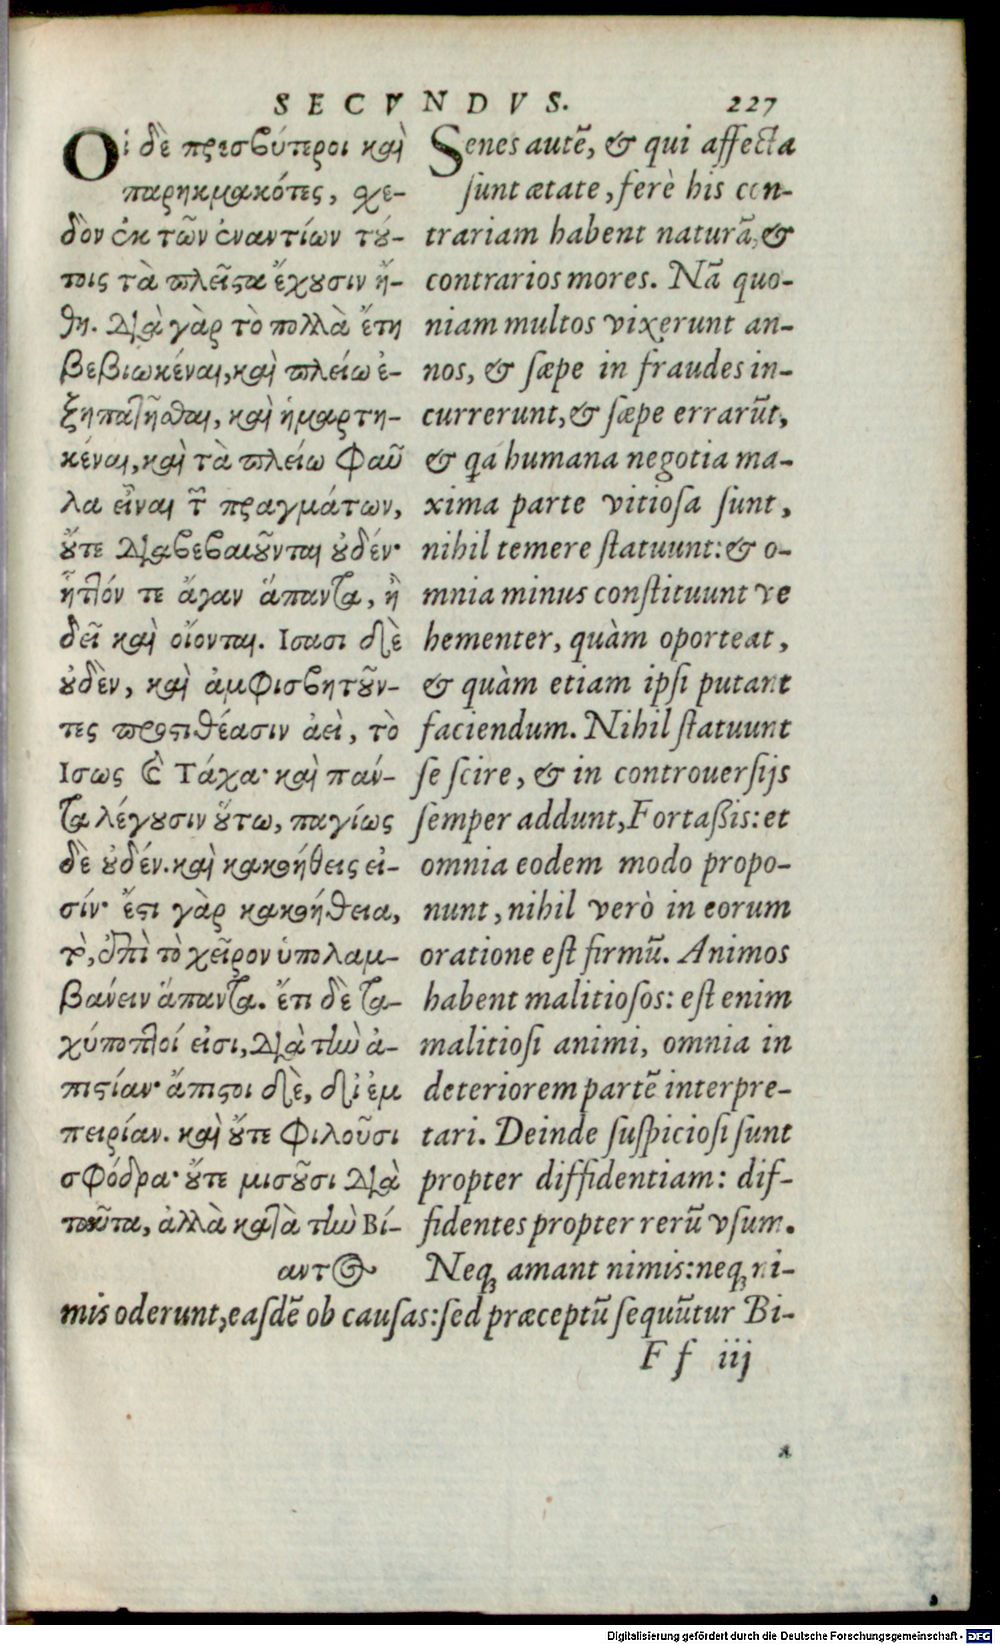 SECVNDVS. 227
Οἱ δὲ πρεσβύτεροι καὶ
παρηκμακότες, σχε-
δὸν ἐκ τῶν ἐναντίων τού-
τοις τὰ πλεῖστα ἔχουσιν ἤ-
θη. διὰ γὰρ τὸ πολλὰ ἔτη
βεβιωκέναι, καὶ πλείω ἐ-
ξηπατῆσθαι, καὶ ἡμαρτη-
κέναι, καὶ τὰ πλείω φαῦ
λα εἶναι τῶν πραγμάτων,
οὔτε διαβεβαιοῦνται οὐδέν·
ἧττόν τε ἄγαν ἅπαντα, ἢ
δεῖ καὶ οἴονται. Ισασι δὲ
οὐδὲν, καὶ ἀμφισβητοῦν-
τες προστιθέασιν ἀεὶ, τὸ
Ισως καὶ Τάχα· καὶ πάν-
τα λέγουσιν οὕτω, παγίως
δὲ οὐδέν. καὶ κακοήθεις εἰ-
σίν· ἔστι γὰρ κακοήθεια,
τὸ, ἐπὶ τὸ χεῖρον ὑπολαμ-
βάνειν ἅπαντα. ἔτι δὲ τα-
χύποπτοί εἰσι, διὰ τὴν ἀ-
πιστίαν· ἄπιστοι δὲ, δι' ἐμ
πειρίαν. καὶ οὔτε φιλοῦσι
σφόδρα· οὔτε μισοῦσι διὰ
ταῦτα, ἀλλὰ κατὰ τὴν Βί-
αντος
Senes autē, & qui affecta
sunt ætate, ferè his con-
trariam habent naturā, &
contrarios mores. Nā quo-
niam multos vixerunt an-
nos, & sæpe in fraudes in-
currerunt, & sæpe errarūt,
& qa humana negotia ma-
xima parte vitiosa sunt,
nihil temere statuunt: & o-
mnia minus constituunt ve
hementer, quàm oporteat,
& quàm etiam ipsi putant
faciendum. Nihil statuunt
se scire, & in controuersijs
semper addunt, Fortaßis: et
omnia eodem modo propo-
nunt, nihil verò in eorum
oratione est firmū. Animos
habent malitiosos: est enim
malitiosi animi, omnia in
deteriorem partē interpre-
tari. Deinde suspiciosi sunt
propter diffidentiam: dif-
fidentes propter rerū vsum.
Neq; amant nimis: neq; ni-
mis oderunt, easdē ob causas: sed præceptū sequūtur Bi-
F f iij
Digitalisierung gefördert durch die Deutsche Forschungsgemeinschaft - DFG